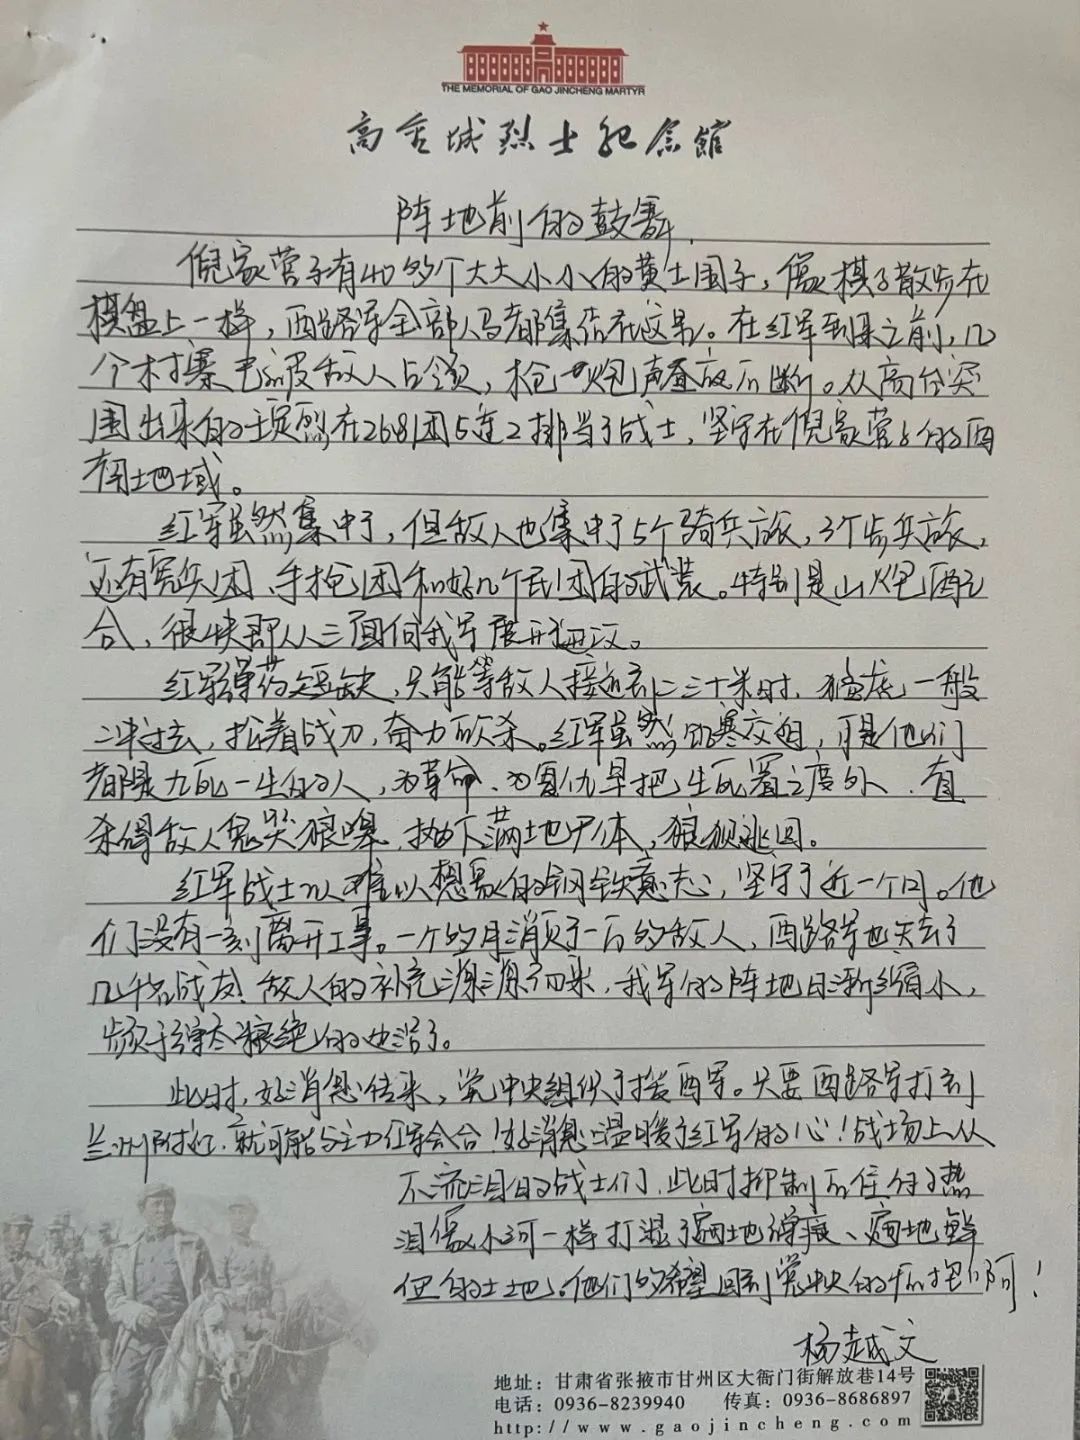 THE MEMORIAL OF GAO JINCHENG MARTYR
高金城烈士纪念馆
阵地前的鼓舞
倪家营子有40多个大大小小的黄土围子，像棋子散步在
棋盘上一样，西路军全部人马都集结在这里。在红军到来之前，几
个村寨已被敌人占领，枪炮声昼夜不断。从高台突
围出来的王定烈在268团5连2排当了战士，坚守在倪家营子的西
南地域。
红军虽然集中了，但敌人也集中了5个骑兵旅，3个步兵旅，
还有宪兵团、手枪团和好几个民团的武装。特别是山炮配
合，很快即从三面向我军展开进攻。
红军弹药短缺，只能等敌人接近到二三十米时，猛虎一般
冲过去，抡着战刀，奋力砍杀。红军虽然饥寒交迫，可是他们
都是九死一生的人，为革命、为复仇早把生死置之度外，直
杀得敌人鬼哭狼嚎，抛下满地尸体，狼狈逃回。
红军战士以难以想象的钢铁意志，坚守了近一个月。他
们没有一刻离开工事。一个的月消灭了一万的敌人，西路军也失去了
几千名战友，敌人的补充源源而来，我军的阵地日渐缩小，
频于弹尽粮绝的边沿了。
此时，好消息传来，党中央组织了援西军。只要西路军打到
兰州附近，就可能与主力红军会合！好消息温暖了红军的心！战场上从
不流泪的战士们，此时抑制不住的热
泪像小河一样打湿了遍地弹痕、遍地鲜
血的土地。他们的希望回到党中央的怀抱啊！
杨越文
地址：甘肃省张掖市甘州区大衙门街解放巷14号
电话：0936-8239940 传真：0936-8686897
http://www.gaojincheng.com